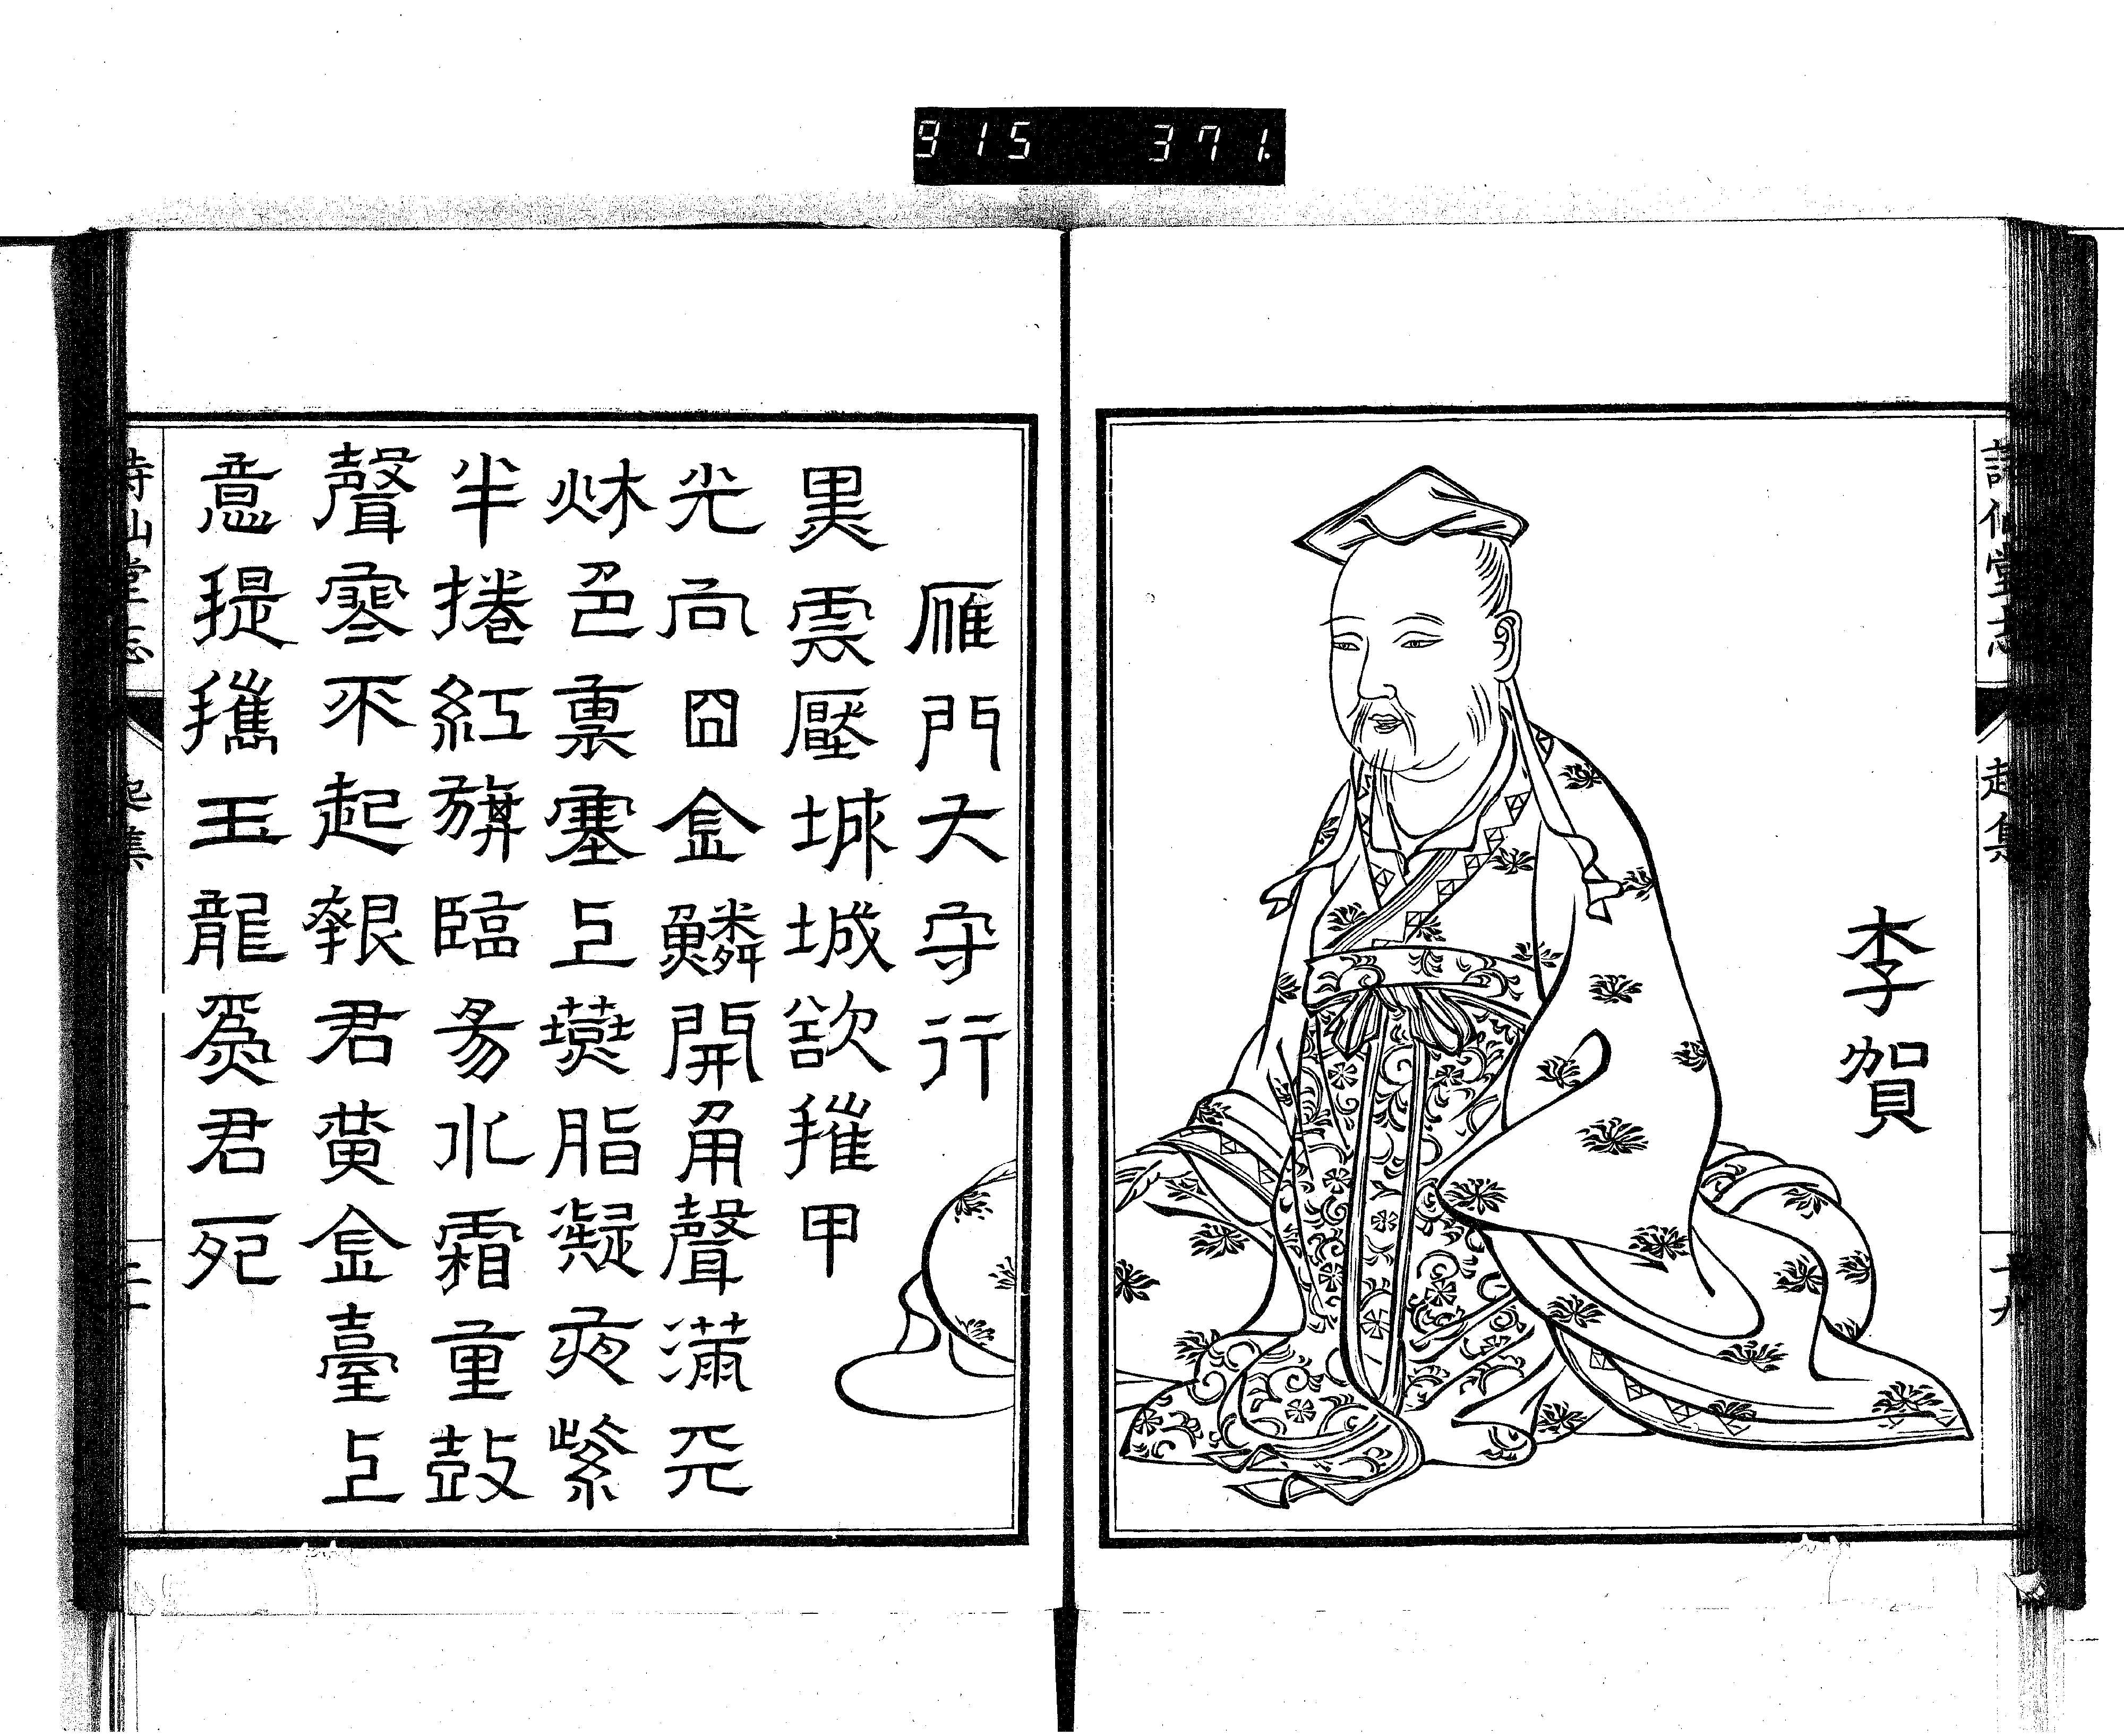 915 371.
詩仙堂志
起集
李賀
雁門大守行
黒雲壓城城欲摧甲
光向日金鱗開角聲滿天
秌色裏塞上燕脂凝夜紫
半捲紅旗臨易水霜重鼓
聲寒不起報君黃金臺上
意提攜玉龍爲君死
詩仙堂志
起集